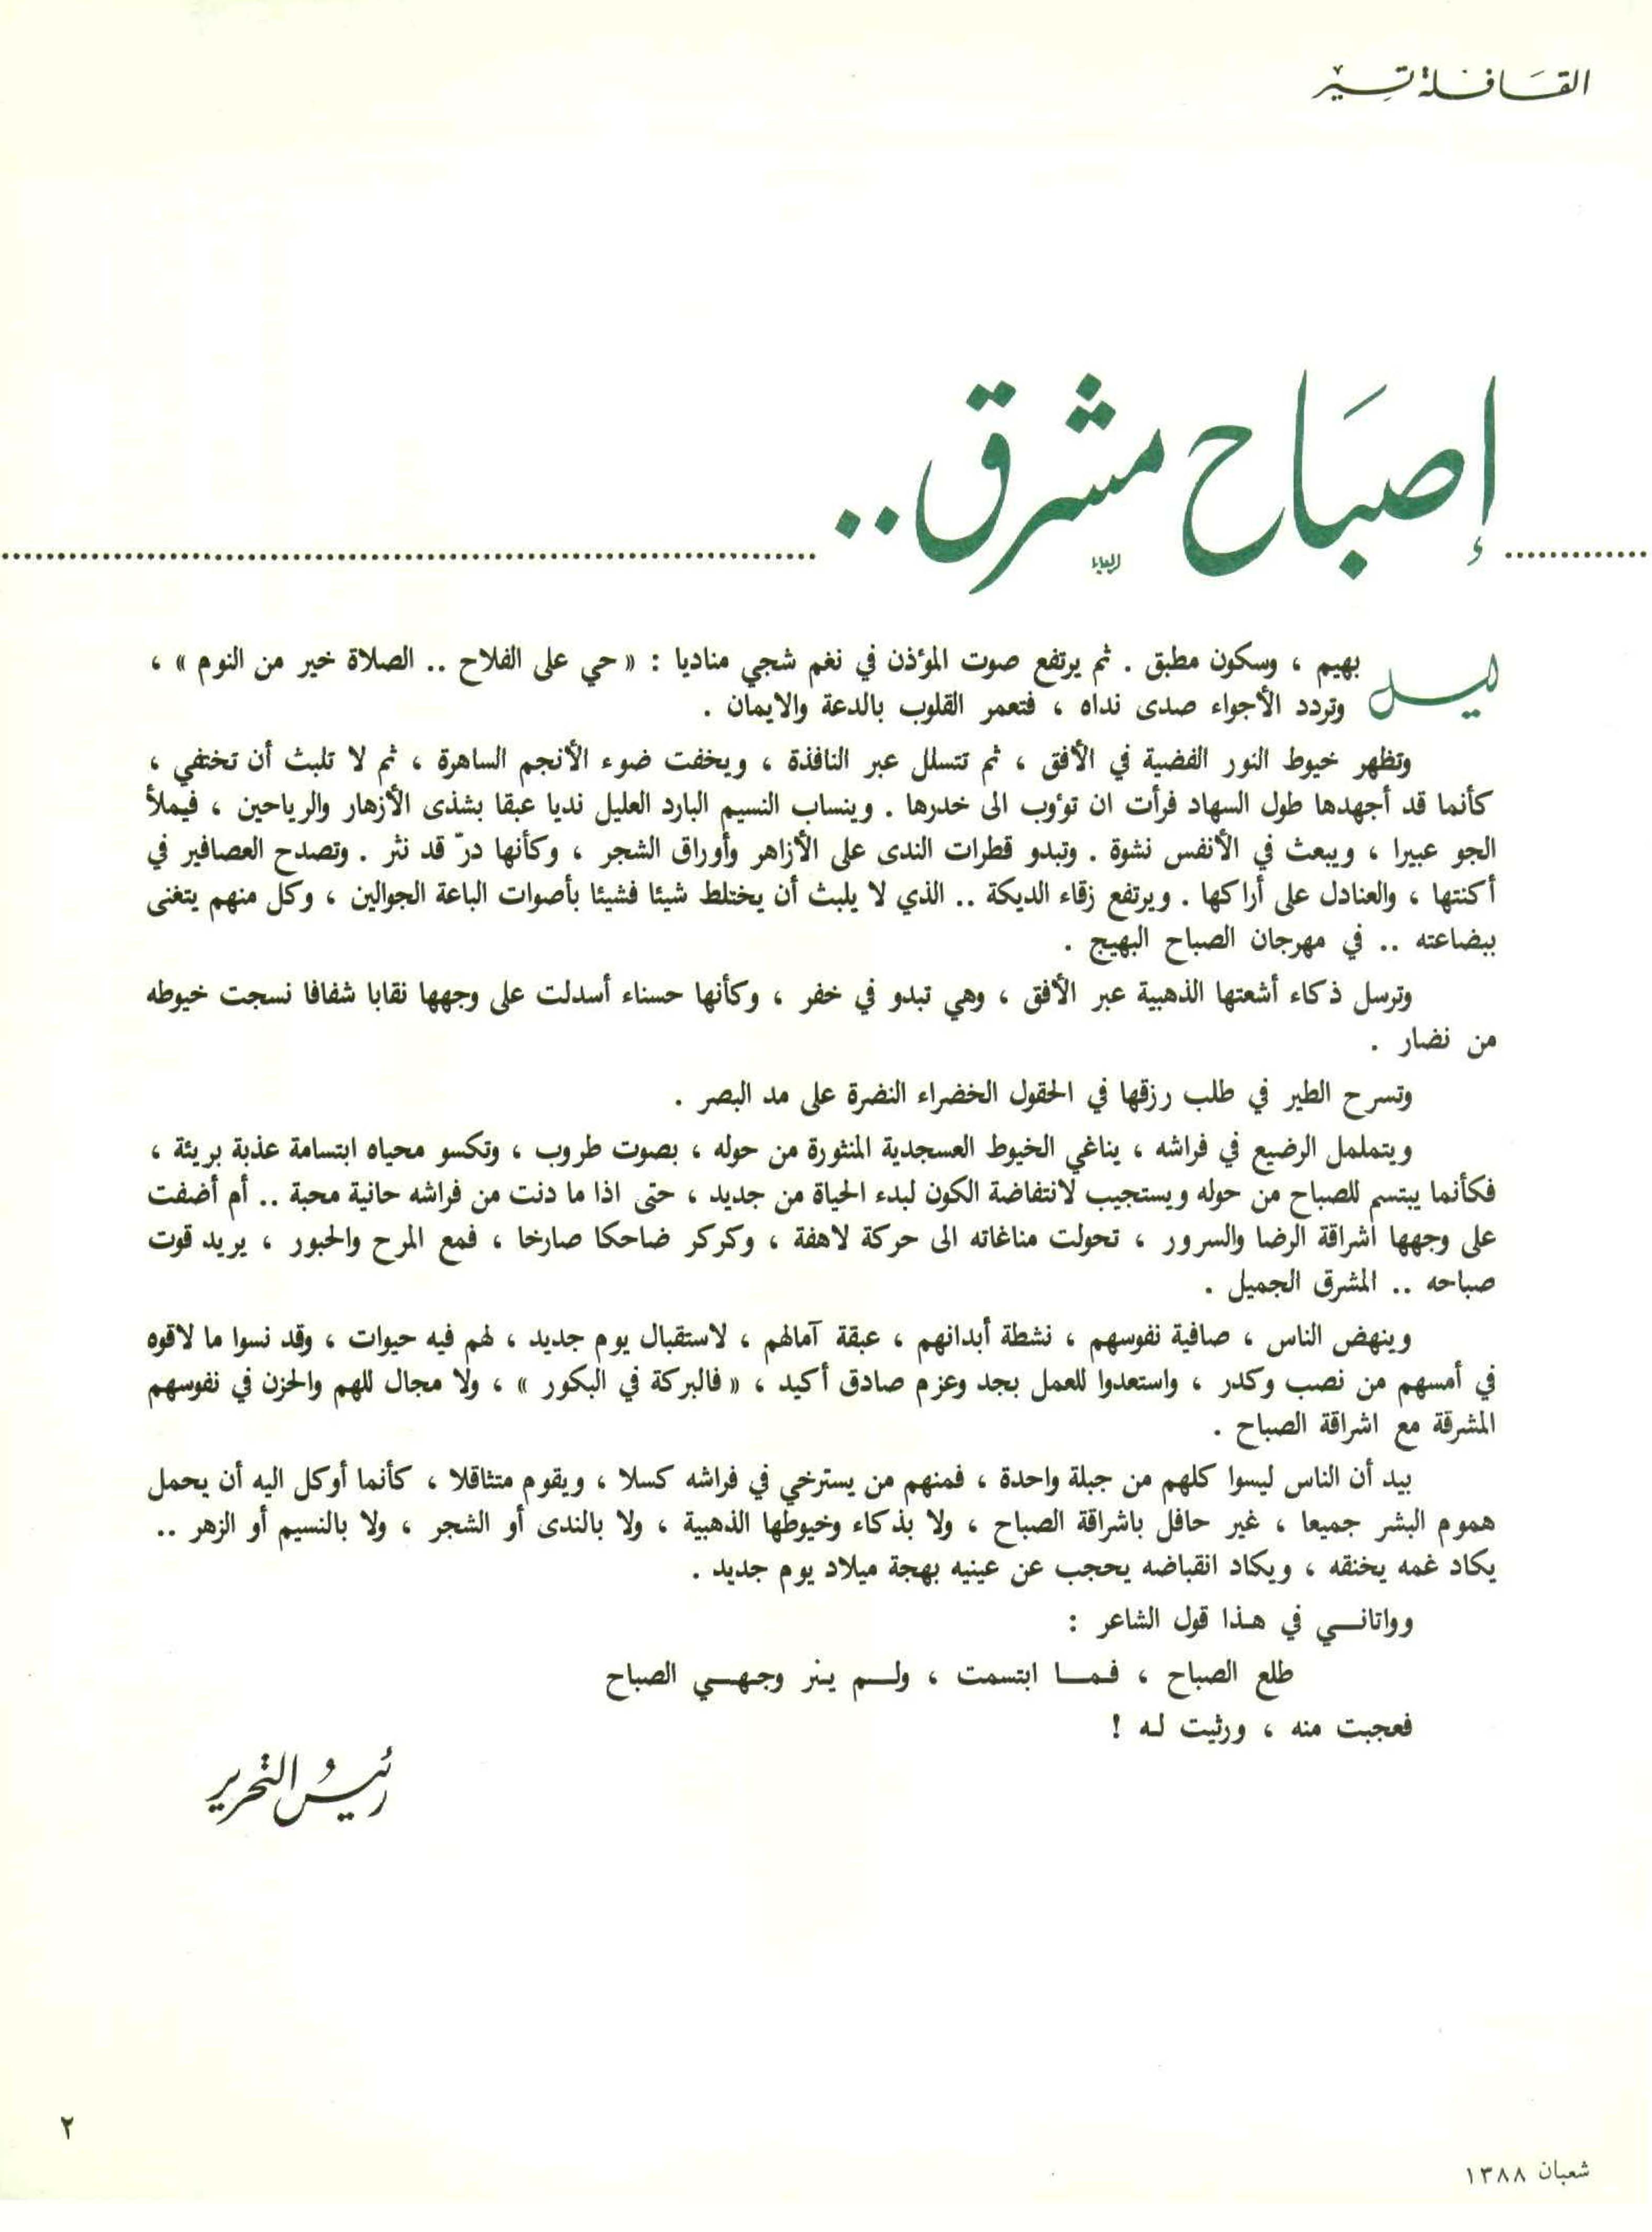 القافلة تسير
إصباح مشرق ..
ليل بهيم ، وسكون مطبق . ثم يرتفع صوت المؤذن في نغم شجي مناديا : « حي على الفلاح .. الصلاة خير من النوم » ،
وتردد الأجواء صدى نداه ، فتعمر القلوب بالدعة والايمان .
وتظهر خيوط النور الفضية في الأفق ، ثم تتسلل عبر النافذة ، ويخفت ضوء الأنجم الساهرة ، ثم لا تلبث أن تختفي ،
كأنما قد أجهدها طول السهاد فرأت ان تؤوب الى خدرها . وينساب النسيم البارد العليل نديا عبقا بشذى الأزهار والرياحين ، فيملأ
الجو عبيرا ، ويبعث في الأنفس نشوة . وتبدو قطرات الندى على الأزاهر وأوراق الشجر ، وكأنها درّ قد نثر . وتصدح العصافير في
أكنتها ، والعنادل على أراكها . ويرتفع زقاء الديكة .. الذي لا يلبث أن يختلط شيئا فشيئا بأصوات الباعة الجوالين ، وكل منهم يتغنى
ببضاعته .. في مهرجان الصباح البهيج .
وترسل ذكاء أشعتها الذهبية عبر الأفق ، وهي تبدو في خفر ، وكأنها حسناء أسدلت على وجهها نقابا شفافا نسجت خيوطه
من نضار .
وتسرح الطير في طلب رزقها في الحقول الخضراء النضرة على مد البصر .
ويتململ الرضيع في فراشه ، يناغي الخيوط العسجدية المنثورة من حوله ، بصوت طروب ، وتكسو محياه ابتسامة عذبة بريئة ،
فكأنما يبتسم للصباح من حوله ويستجيب لانتفاضة الكون لبدء الحياة من جديد ، حتى اذا ما دنت من فراشه حانية محبة .. أم أضفت
على وجهها اشراقة الرضا والسرور ، تحولت مناغاته الى حركة لاهفة ، وكركر ضاحكا صارخا ، فمع المرح والحبور ، يريد قوت
صباحه .. المشرق الجميل .
وينهض الناس ، صافية نفوسهم ، نشطة أبدانهم ، عبقة آمالهم ، لاستقبال يوم جديد ، لهم فيه حيوات ، وقد نسوا ما لاقوه
في أمسهم من نصب وكدر ، واستعدوا للعمل بجد وعزم صادق أكيد ، « فالبركة في البكور » ، ولا مجال للهم والحزن في نفوسهم
المشرقة مع اشراقة الصباح .
بيد أن الناس ليسوا كلهم من جبلة واحدة ، فمنهم من يسترخي في فراشه كسلا ، ويقوم متثاقلا ، كأنما أوكل اليه أن يحمل
هموم البشر جميعا ، غير حافل باشراقة الصباح ، ولا بذكاء وخيوطها الذهبية ، ولا بالندى أو الشجر ، ولا بالنسيم أو الزهر ..
يكاد غمه يخنقه ، ويكاد انقباضه يحجب عن عينيه بهجة ميلاد يوم جديد .
وواتاني في هذا قول الشاعر :
طلع الصباح ، فما ابتسمت ، ولم ينر وجهي الصباح
فعجبت منه ، ورثيت له !
رئيسُ التحرير
٢
شعبان ١٣٨٨